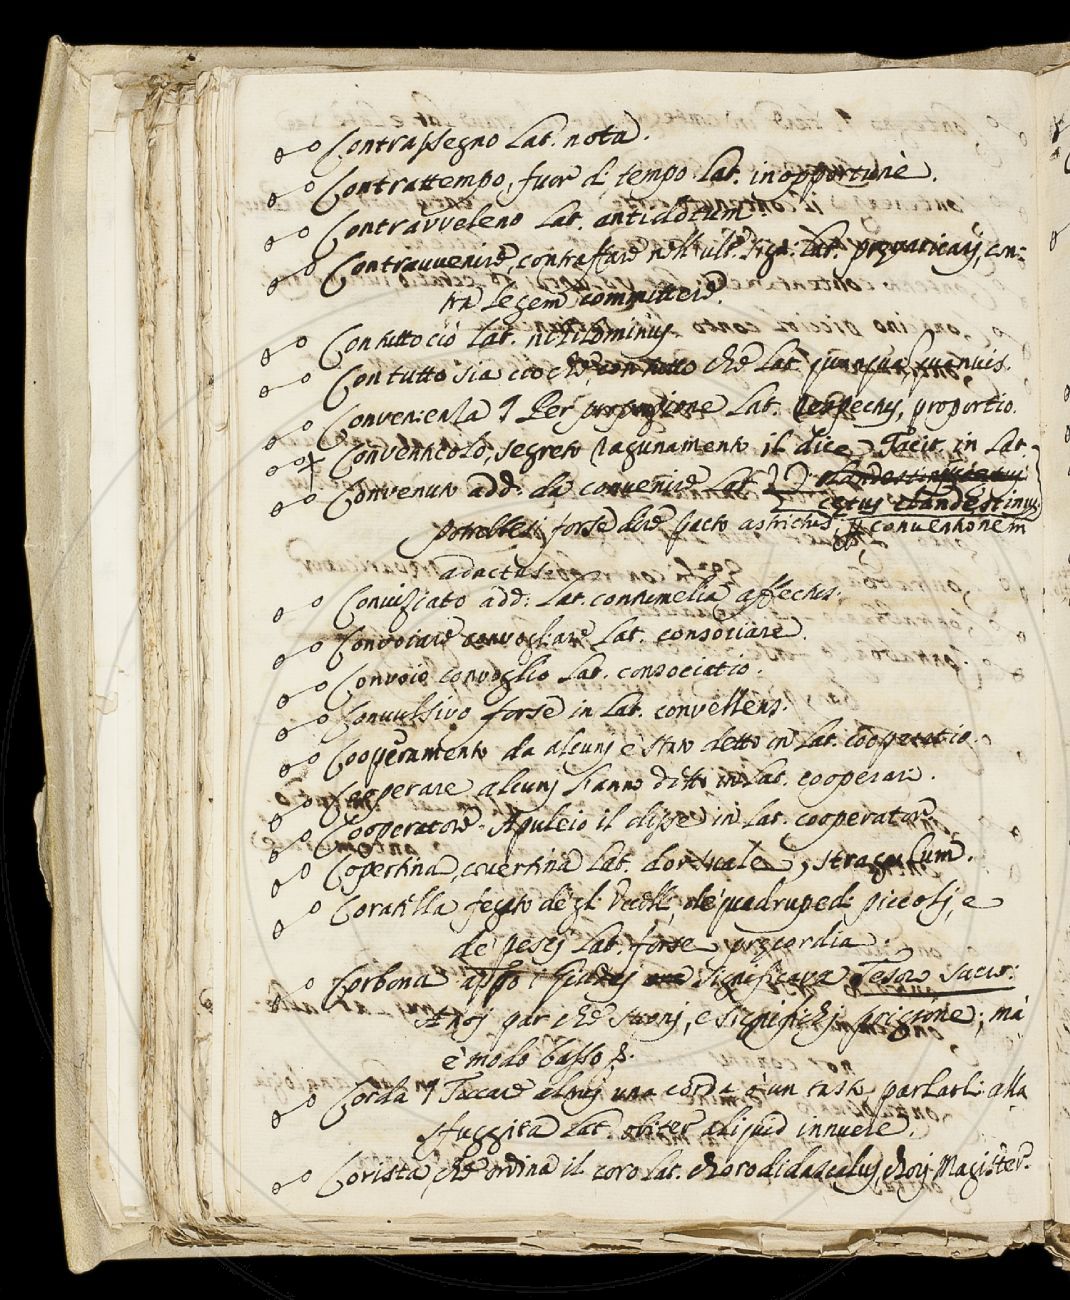 Contrassegno Lat. nota.
Contrattempo, fuor di tempo Lat. inopportunè.
Contravveleno Lat. antidotum
Contravvenire, contraffare nell'ult. sign: Lat. prevaricarj, con-
tra legem committere.
Con tutto ciò Lat. nihilominus
Con tutto sia cio che, con tutto che Lat. quanquam, quamvis.
Convenienza ¶ Per proporzione Lat. respectus, proportio.
Conventicolo, segreto ragunamento il dice Tacit. in Lat.
clandestinus
cetus clandestinus
Convenuto add: da convenire Lat.
potrebbesi forse dire pacto astrictus; conventionem
adactus.
Conviziato add: Lat. contumelia affectus.
Convoiare convogliare Lat. consociare.
Convoio convoglio Lat. consociatio.
Convulsivo forse in Lat. convellens.
Cooperamento da alcuni è stato detto in Lat. cooperatio.
Cooperare alcuni hanno detto in Lat. cooperari.
Cooperatore. Apuleio il disse in Lat. cooperator
Copertina, covertina Lat. dorsuale, stragulum.
Coratella fegato degl' Uccelli, de' quadrupedi piccoli, e
de' pesci Lat. forse precordia.
Corbona appo i Giudei significava Tesor sacro:
A noj par che suoni, e significhi prigione, mà
è modo basso &.
Corda ¶ Toccare altrui una corda o un tasto parlarli alla
sfuggita Lat. obiter aliquid innuere.
Corista che ordina il coro Lat. chorodidascalus, chori Magister.